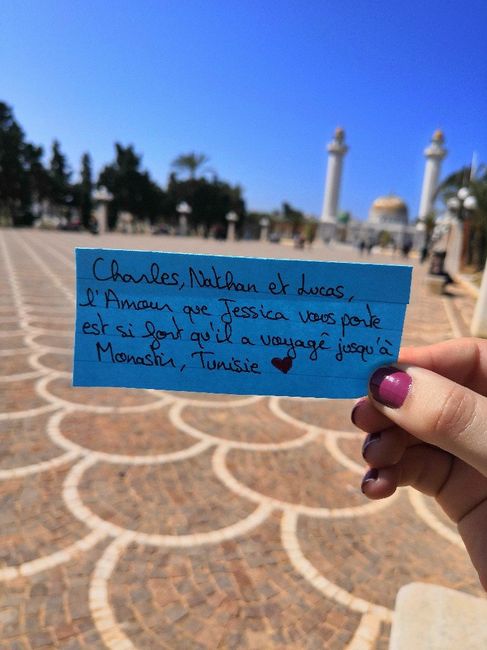 Charles, Nathan et Lucas,
l'Amour que Jessica vous porte
est si fort qu'il a voyagé jusqu'à
Monastir, Tunisie ♥